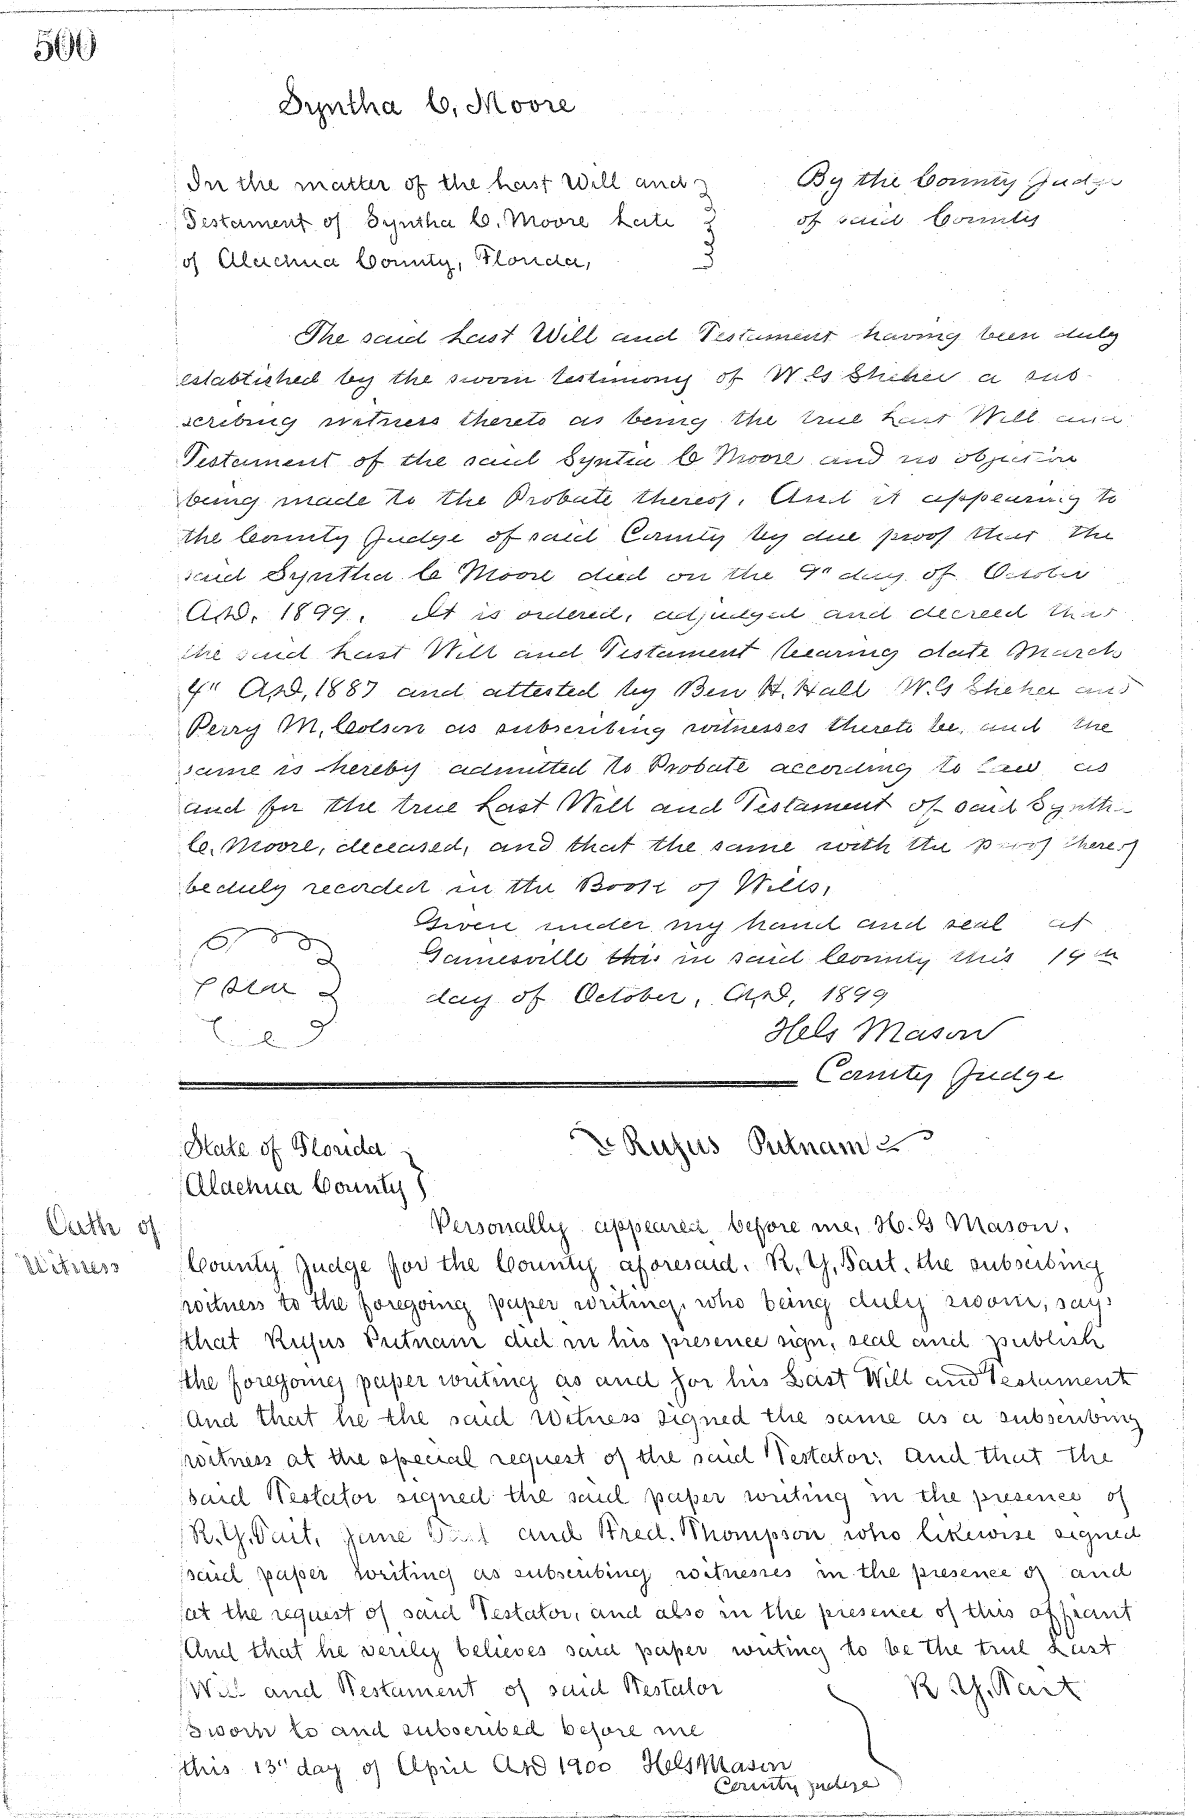 500
Syntha C. Moore
In the matter of the Last Will and
Testament of Syntha C. Moore Late
of Alachua County, Florida,
By the County Judge
of said County
The said Last Will and Testament having been duly
established by the sworn testimony of W.G Sheher a sub-
scribing witness thereto as being the true Last Will and
Testament of the said Syntia C Moore and no objection
being made to the Probate thereof. And it appearing to
the County Judge of said County by due proof that the
said Syntha C Moore died on the 9" day of October
A.D. 1899. It is ordered, adjudged and decreed that
the said Last Will and Testament bearing date March
4" A.D, 1887 and attested by Ben H. Hall W.G Sheher and
Perry M. Colson as subscribing witnesses thereto be, and the
same is hereby admitted to Probate according to law as
and for the true Last Will and Testament of said Syntha
C. Moore, deceased, and that the same with the proof thereof
be duly recorded in the Book of Wills,
Given under my hand and seal at
Gainesville this in said County this 19th
day of October, A,D, 1899
Seal
H G Mason
County Judge
State of Florida
Alachua County
Rufus Putnam
Oath of
Witness
Personally appeared before me, H. G Mason,
County Judge for the County aforesaid. R. Y. Tait, the subscribing
witness to the foregoing paper writing, who being duly sworn, says
that Rufus Putnam did in his presence sign, seal and publish
the foregoing paper writing as and for his Last Will and Testament
And that he the said Witness signed the same as a subscribing
witness at the special request of the said Testator; and that the
said Testator signed the said paper writing in the presence of
R. Y. Tait, Jane Tait and Fred. Thompson who likewise signed
said paper writing as subscribing witnesses in the presence of and
at the request of said Testator, and also in the presence of this affiant
And that he verily believes said paper writing to be the true Last
Will and Testament of said Testator
R. Y. Tait
Sworn to and subscribed before me
this 13" day of April A.D 1900 H G Mason
County Judge